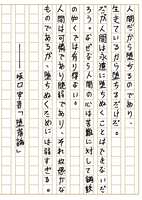 人間だから堕ちるのであり、
生きているから堕ちるだけだ。
だが人間は永遠に堕ちぬくことはできないだ
ろう。なぜなら人間の心は苦難に対して鋼鉄
の如くでは有り得ない。
人間は可憐であり脆弱であり、それ故愚かな
ものであるが、堕ちぬくためには弱すぎる。
――坂口安吾「堕落論」